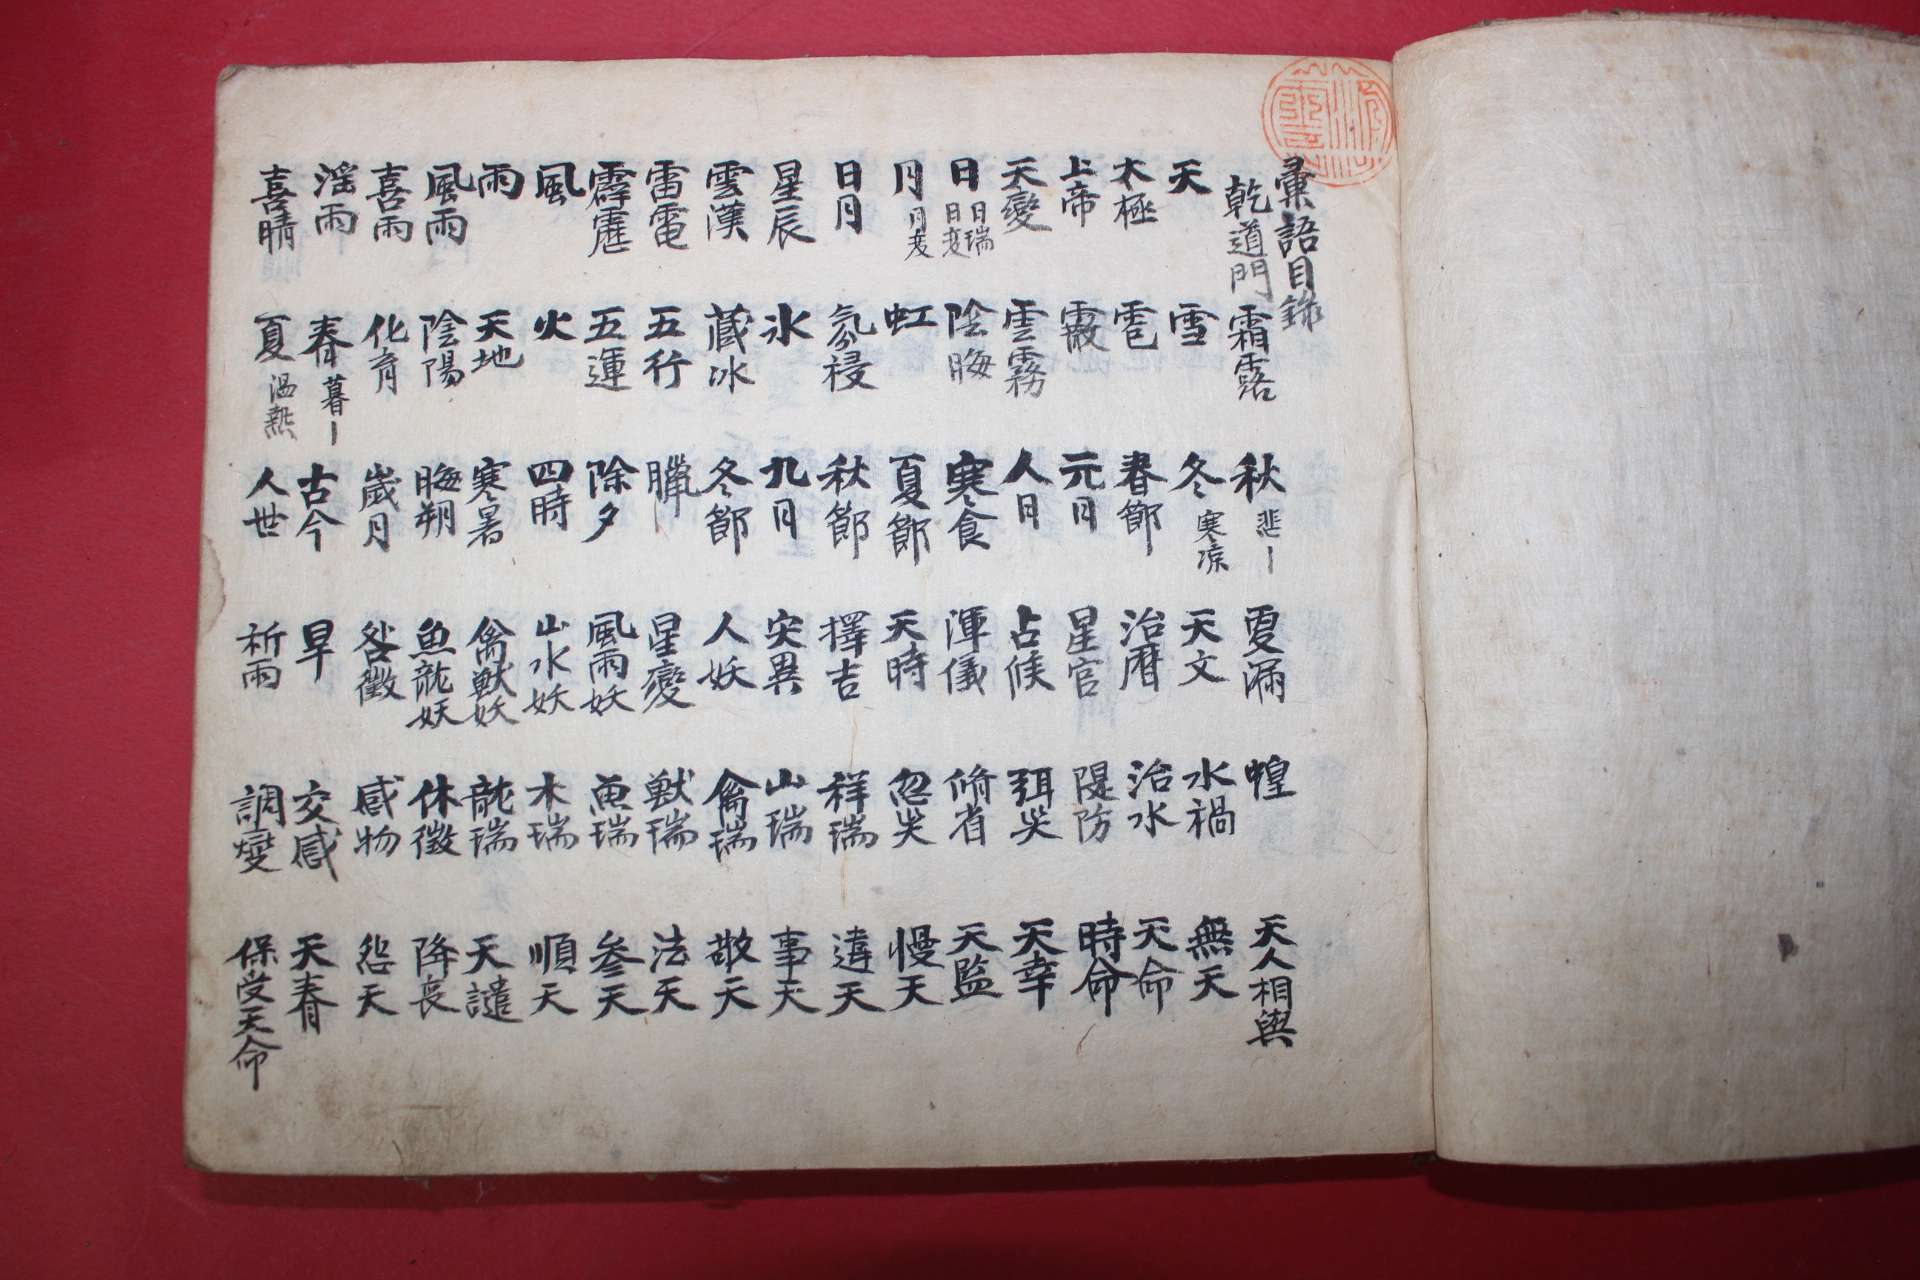 彙語目錄
乾道門
天
太極
上帝
天變
日 日瑞 日变
月 月变
日月
星辰
雲漢
雷電
霹靂
風
雨
風雨
喜雨
淫雨
喜晴
霜露
雪
雹
霰
雲霧
陰晦
虹
氛祲
氷
藏冰
五行
五運
火
天地
陰陽
化育
春 暮〡
夏 温熱
秋 悲〡
冬 寒凉
春節
元日
人日
寒食
夏節
秋節
九日
冬節
臘
除夕
四時
寒暑
晦朔
歲月
古今
人世
更漏
天文
治曆
星官
占候
渾儀
天時
擇吉
灾異
人妖
星變
風雨妖
山水妖
禽獸妖
魚龍妖
咎徵
旱
祈雨
蝗
水禍
治水
隄防
弭灾
脩省
忽灾
祥瑞
山瑞
禽瑞
獸瑞
魚瑞
木瑞
龍瑞
休徵
感物
交感
調燮
天人相與
無天
天命
時命
天幸
天監
慢天
違天
事天
敬天
法天
參天
順天
天譴
降喪
怨天
天眷
保受天命